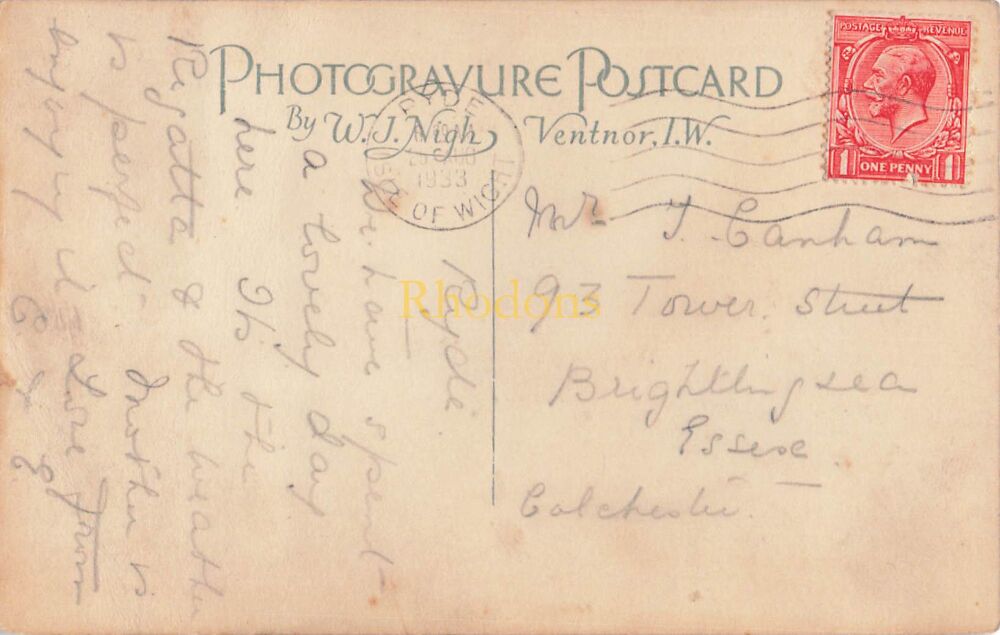 PHOTOGRAVURE POSTCARD
By W. J. Nigh, Ventnor, I.W.
POSTAGE REVENUE
1 ONE PENNY 1
RYDE
1933
OF WIGHT
Ryde
We have spent
a lovely day
here Its the
Regatta & the weather
is perfect Mother is
enjoying it Love from
E & E.
Mr T. Canham
93 Tower Street
Brightlingsea
Essex
Colchester.
Rhodons